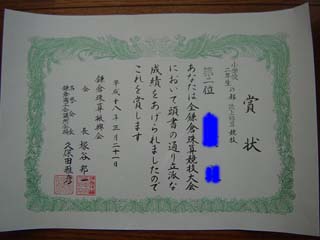 賞状
小学校
二年生の部 読上暗算競技
第二位
あなたは全鎌倉珠算競技大会
において頭書の通り立派な
成績をあげられましたので
これを賞します
平成十八年三月二十一日
鎌倉珠算振興会
会長 板谷邦一
名誉会長
鎌倉商工会議所会頭
久保田雅彦